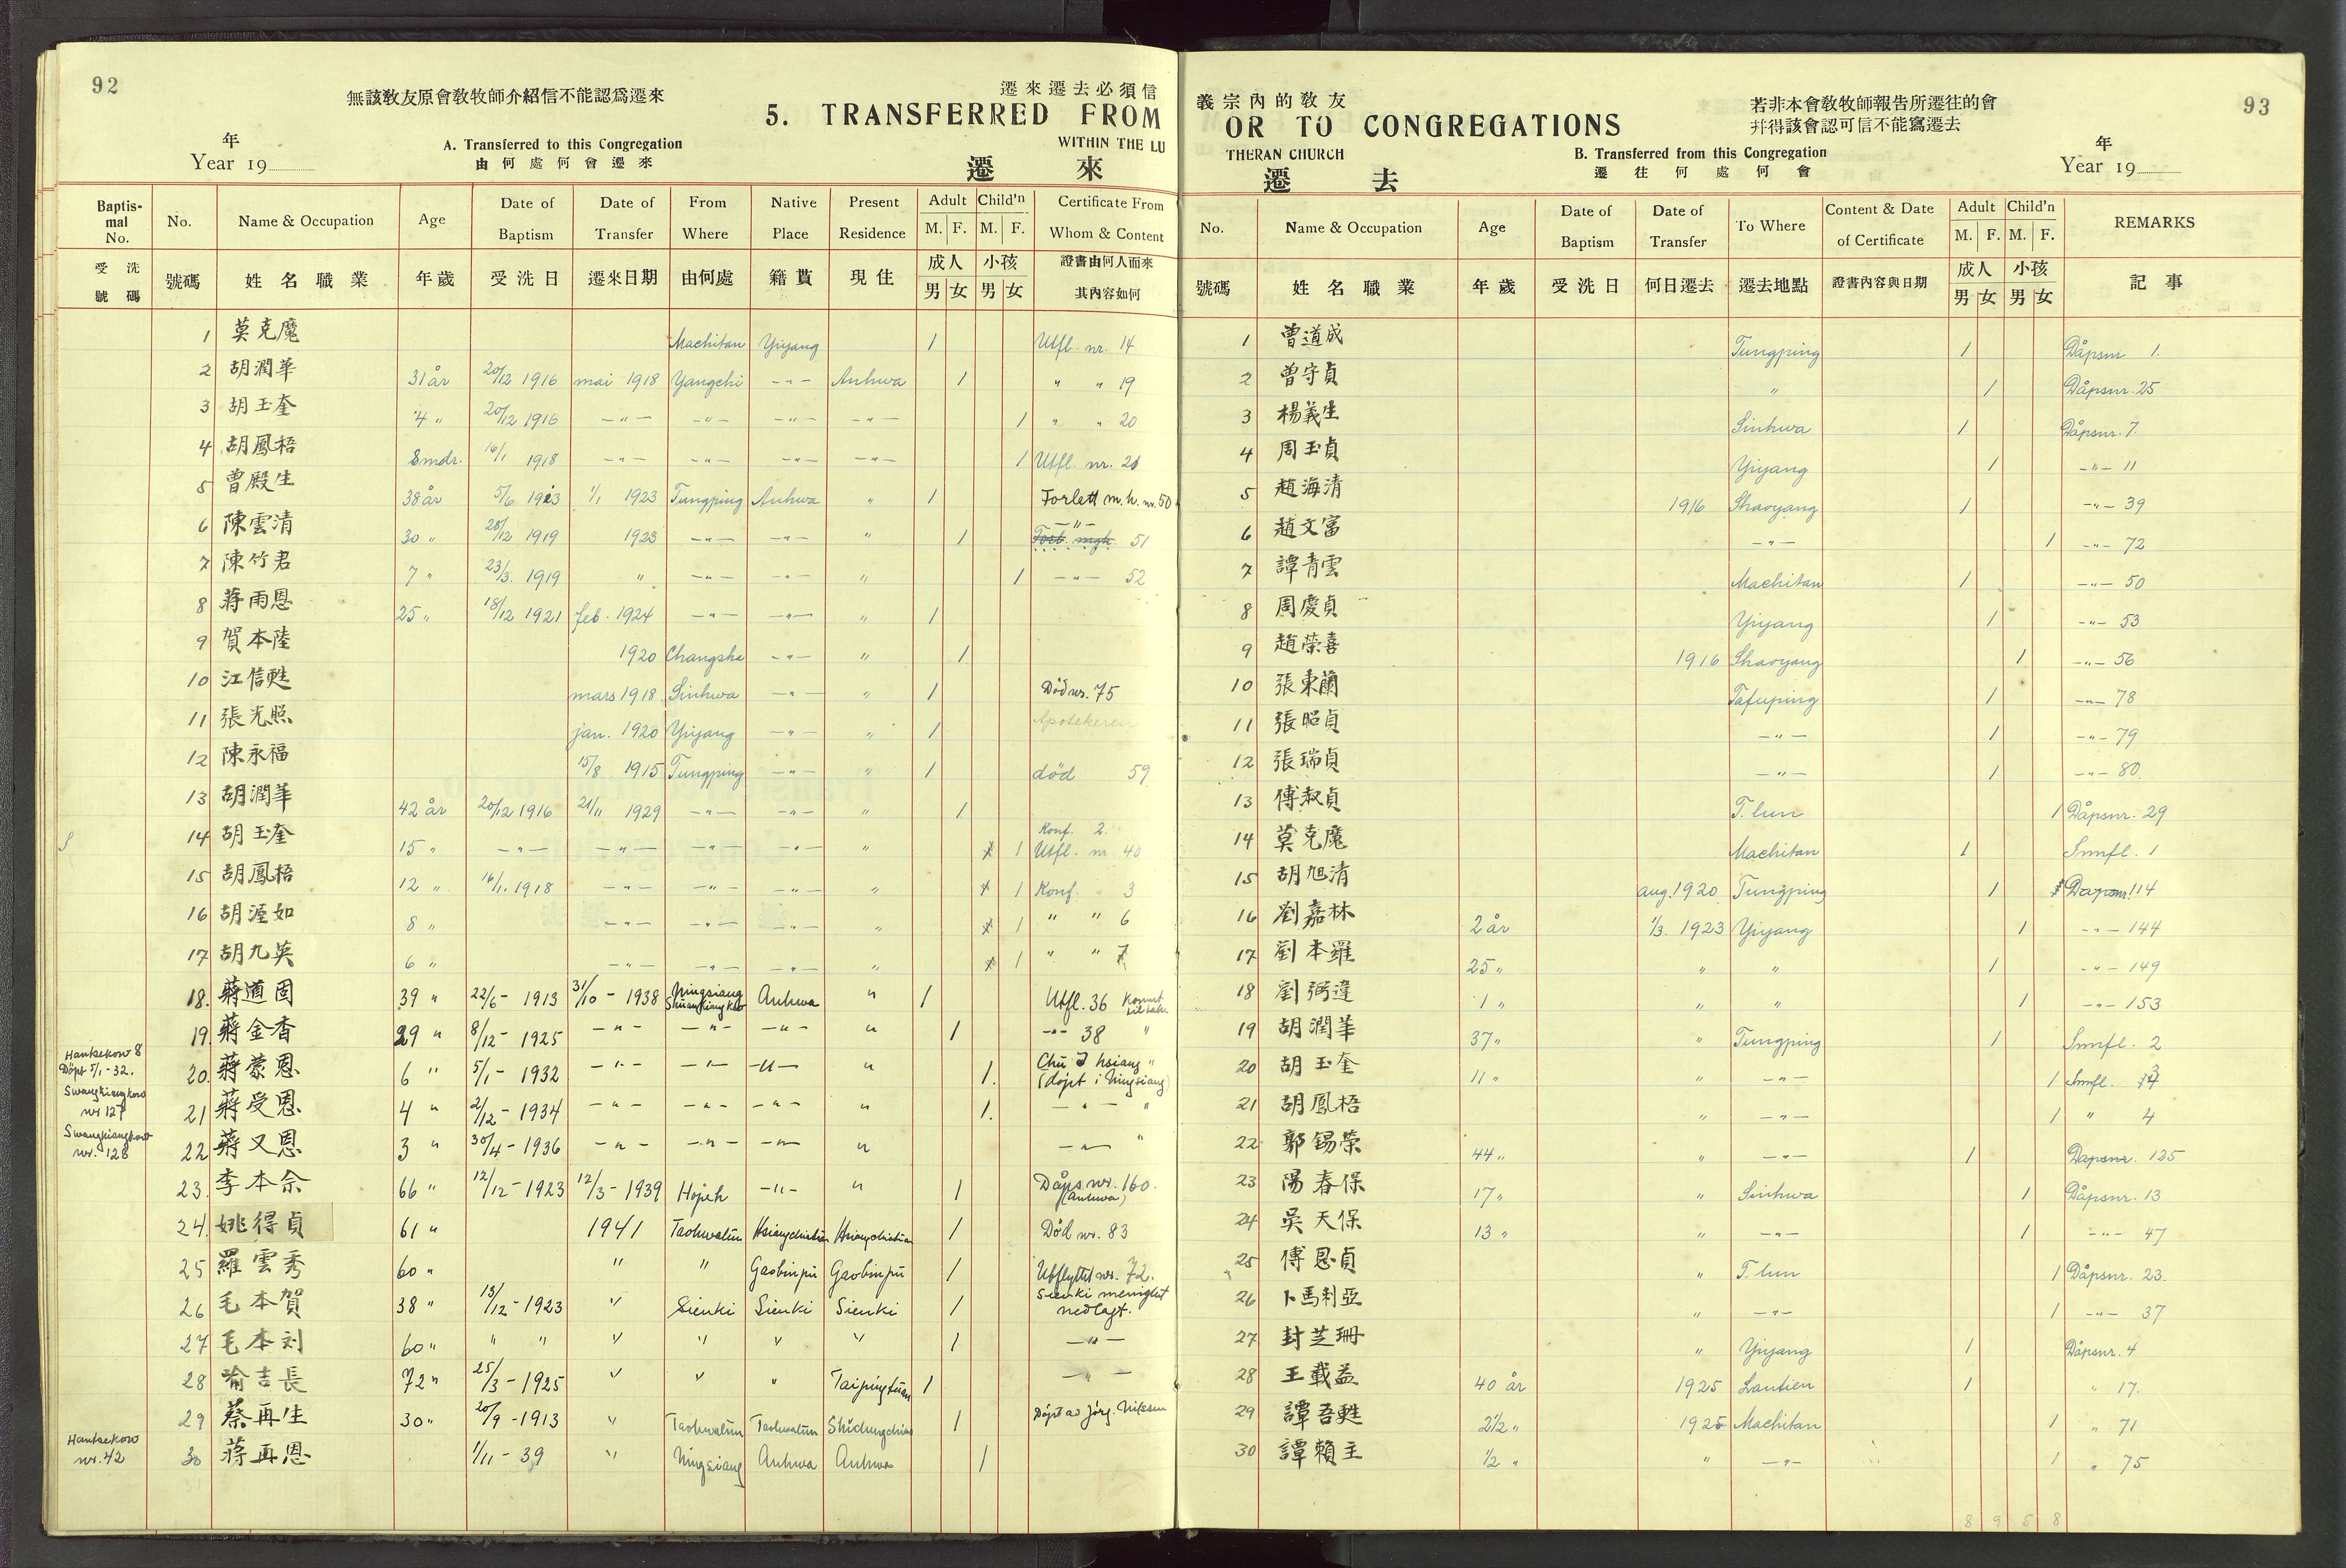 92
無該教友原會教牧師介紹信不能認爲遷來
遷來遷去必須信
5. TRANSFERRED FROM
年
Year 19
A. Transferred to this Congregation
由何處何會遷來
WITHIN THE LU
遷 來
Baptismal No. No. Name & Occupation Age Date of Baptism Date of Transfer From Where Native Place Present Residence Adult M. F. Child'n M. F. Certificate From Whom & Content
受洗號碼 號碼 姓名職業 年歲 受洗日 遷來日期 由何處 籍貫 現住 成人 男 女 小孩 男 女 證書由何人而來其內容如何
1 莫克魔 Machitan Yiyang 1 Utfl. nr. 14
2 胡潤華 31 år 20/12 1916 mai 1918 Yangchi -"- Anhwa 1 " " 19
3 胡玉奎 4 " 20/12 1916 -"- -"- -"- -"- 1 " " 20
4 胡鳳梧 8 mdr. 16/1 1918 -"- -"- -"- -"- 1 Utfl. nr. 21
5 曾殿生 38 år 5/6 1913 1/1 1923 Tungping Anhwa " 1 Forlatt m.h. nr. 50
6 陳雲清 30 " 28/12 1919 1923 -"- -"- " 1 -"- 51
7 陳竹君 7 " 23/3 1919 " -"- -"- " 1 -"- 52
8 蔣雨恩 25 " 18/12 1921 feb. 1924 -"- -"- " 1
9 賀本陸 1920 Changsha -"- " 1
10 江信甦 mars 1918 Sinhwa -"- " 1 Död nr. 75
11 張光照 jan. 1920 Yiyang -"- " 1 Apotekeren
12 陳永福 15/8 1915 Tungping -"- " 1 död 59
13 胡潤華 42 år 20/12 1916 21/11 1929 -"- -"- " 1
14 胡玉奎 15 " -"- -"- -"- -"- " 1 Konf. 2. Utfl. nr. 40
15 胡鳳梧 12 " 16/1 1918 -"- -"- -"- " 1 Konf. " 3
16 胡渥如 8 " -"- -"- -"- " 1 " " 6
17 胡九英 6 " -"- -"- -"- " 1 " " 7
18. 蔣道固 39 " 22/6 - 1913 31/10 - 1938 Ningsiang Shuangkiangkow Anhwa " 1 Utfl. 36 Kommet tilbake
19. 蔣金香 29 " 8/12 - 1925 -"- -"- -"- " 1 -"- 38 "
Hantsekow 8 Döpt 5/1-32. 20. 蔣蒙恩 6 " 5/1 - 1932 -"- -"- -"- " 1. Chü I hsiang " (döpt i Ningsiang)
Swangkiangkow nr 127 21 蔣受恩 4 " 2/12 - 1934 -"- -"- -"- " 1. -"- "
Swangkiangkow nr. 128 22 蔣又恩 3 " 30/4 - 1936 -"- -"- -"- " -"- "
23. 李本佘 66 " 12/12 - 1923 12/3 - 1939 Hopeh -"- " 1 Dåps nr. 160. (Anhwa)
24. 姚得貞 61 " 1941 Taohwalun Hsiangchiatian Hsiangchiatian 1 Död nr. 83
25 羅雲秀 60 " " " Gaobinpu Gaobinpu 1 Utflyttet nr. 72.
26 毛本賀 38 " 13/12 - 1923 " Sienki Sienki Sienki 1 Sienki menighet nedlagt.
27 毛本刘 60 " " " " " " " 1 -"-
28 喻吉長 72 " 25/3 - 1925 " " " Taipingtuan 1 -"-
29 蔡再生 30 " 20/9 - 1913 " Taohwalun Taohwalun Shidungchiao 1 Döpt av Jörg. Nilssen
Hantsekow nr. 42 30 蔣再恩 1/11 - 39 " Ningsiang Anhwa Anhwa 1
93
義宗內的教友
OR TO CONGREGATIONS
若非本會教牧師報告所遷往的會
幷得該會認可信不能寫遷去
THERAN CHURCH
遷 去
B. Transferred from this Congregation
遷往何處何會
年
Year 19
No. Name & Occupation Age Date of Baptism Date of Transfer To Where Content & Date of Certificate Adult M. F. Child'n M. F. REMARKS
號碼 姓名職業 年歲 受洗日 何日遷去 遷去地點 證書內容與日期 成人 男 女 小孩 男 女 記事
1 曾道成 Tungping 1 Dåpsnr 1.
2 曾守貞 " 1 Dåpsnr. 25
3 楊義生 Sinhwa 1 Dåpsnr. 7.
4 周玉貞 Yiyang 1 -"- 11
5 趙海清 1916 Shaoyang 1 -"- 39
6 趙文富 -"- 1 -"- 72
7 譚青雲 Machitan 1 -"- 50
8 周慶貞 Yiyang 1 -"- 53
9 趙榮喜 1916 Shaoyang 1 -"- 56
10 張東蘭 Tafuping 1 -"- 78
11 張昭貞 -"- 1 -"- 79
12 張瑞貞 -"- 1 -"- 80.
13 傅淑貞 T. lun 1 Dåpsnr. 29
14 莫克魔 Machitan 1 Innfl. 1
15 胡旭清 aug. 1920 Tungping 1 Dåpsnr. 114
16 劉嘉林 2 år 1/3. 1923 Yiyang 1 -"- 144
17 劉本羅 25 " " " 1 -"- 149
18 劉弼違 1 " " " 1 -"- 153
19 胡潤華 37 " " Tungping 1 Innfl. 2
20 胡玉奎 11 " " -"- 1 Innfl. 3
21 胡鳳梧 " -"- 1 " 4
22 郭錫榮 44 " " -"- 1 Dåpsnr. 125
23 陽春保 17 " " Sinhwa 1 Dåpsnr. 13
24 吳天保 13 " " -"- 1 -"- 47
25 傅恩貞 " T. lun 1 Dåpsnr. 23.
26 卜馬利亞 " -"- 1 -"- 37
27 封芝珊 " Yiyang 1 Dåpsnr. 4
28 王載益 40 år 1925 Lantien 1 " 17.
29 譚吾甦 2½ " 1925 Machitan 1 " 71
30 譚賴主 ½ " " -"- 1 " 75
8 9 5 8